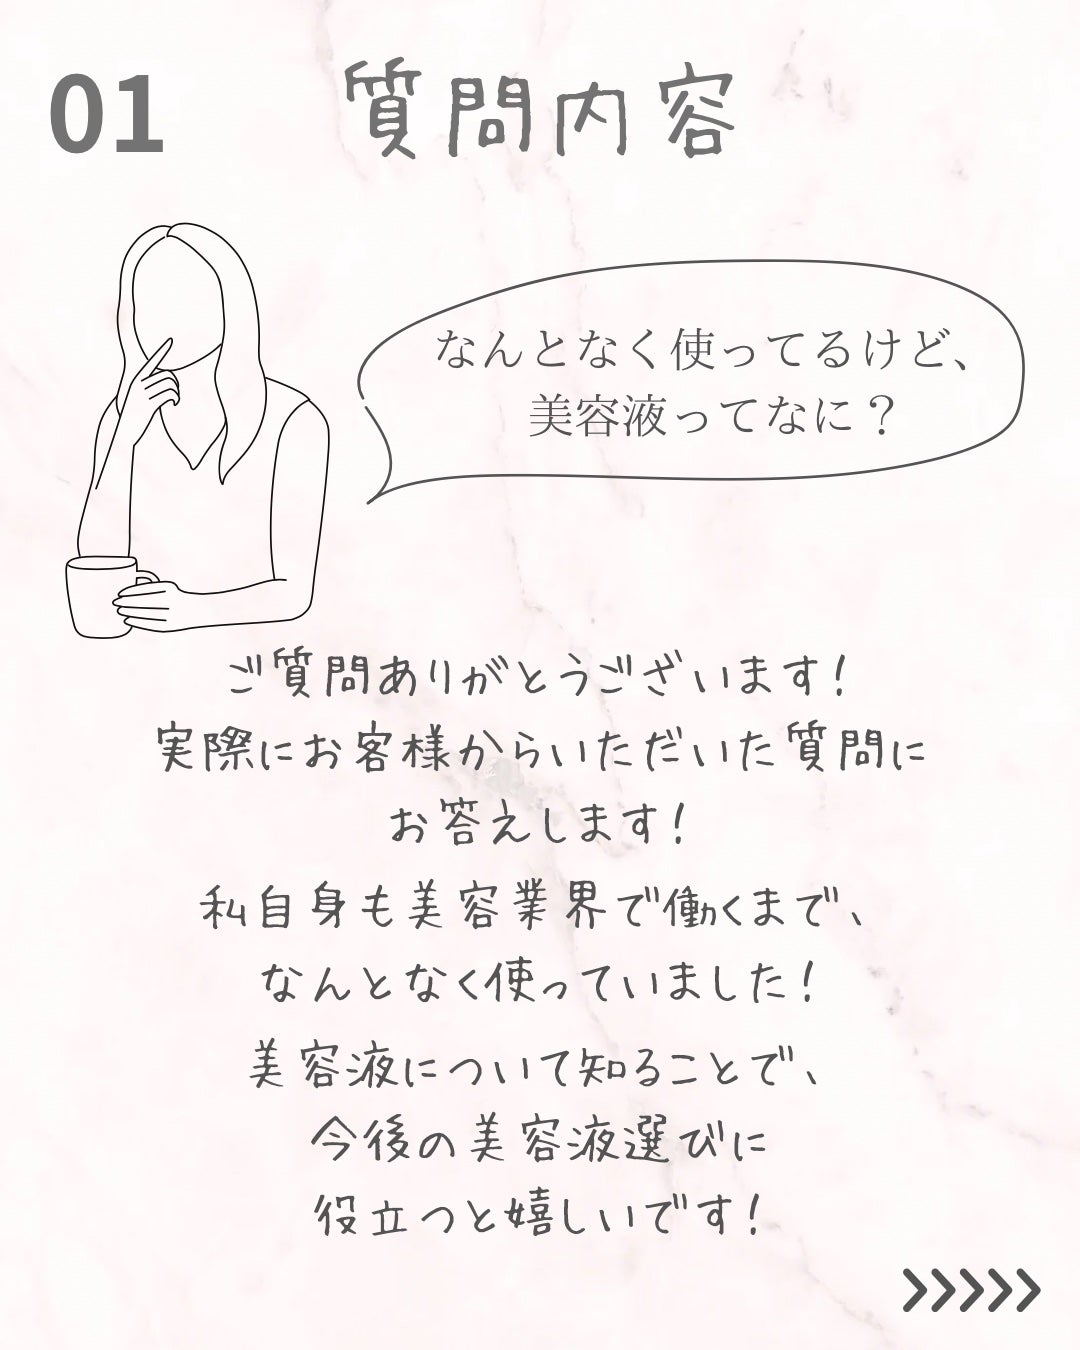 01
質問内容
なんとなく使ってるけど、
美容液ってなに？
ご質問ありがとうございます！
実際にお客様からいただいた質問に
お答えします！
私自身も美容業界で働くまで、
なんとなく使っていました！
美容液について知ることで、
今後の美容液選びに
役立つと嬉しいです！